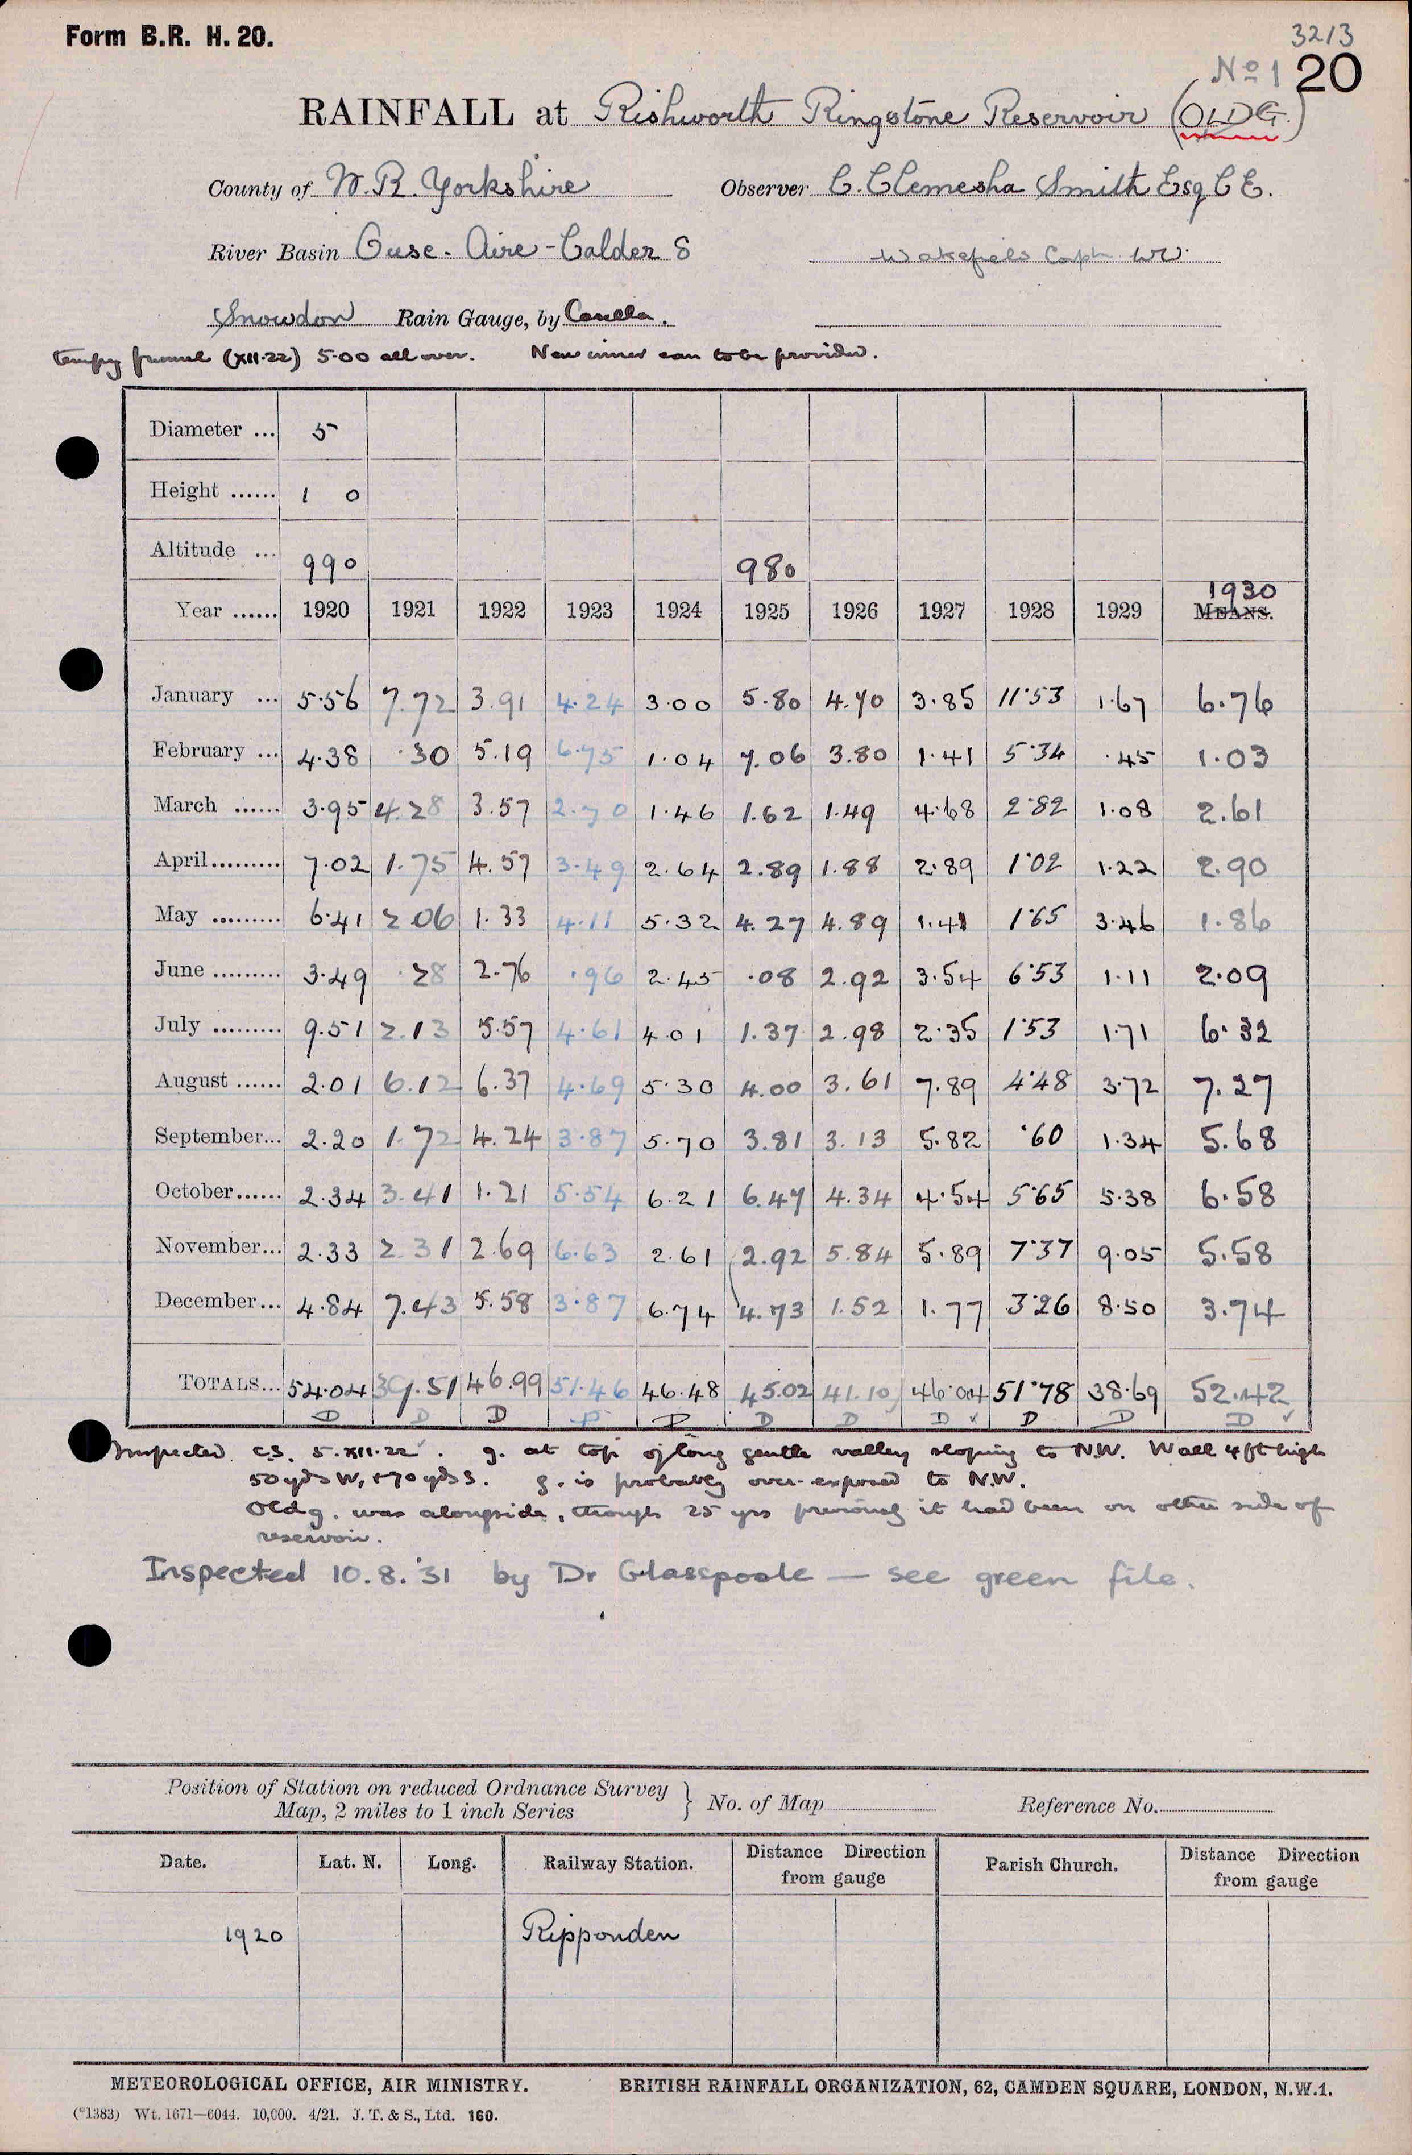 Form B.R. H. 20.
3213
No 1 20
RAINFALL at Rishworth Ringstone Reservoir (OLD G.)
County of W.R. Yorkshire Observer C. Clemesha Smith Esq C E.
River Basin Ouse - Aire - Calder S Wakefield Corpn. WW.
Snowdon Rain Gauge, by Casella.
tempy funnel (XII.22) 5.00 all over. New inner can to be provided.
Diameter ... 5
Height ...... 1 0
Altitude ... 990 980
1930
Year ...... 1920 1921 1922 1923 1924 1925 1926 1927 1928 1929 MEANS.
January ... 5.56 7.72 3.91 4.24 3.00 5.80 4.70 3.85 11.53 1.67 6.76
February ... 4.38 .30 5.19 6.75 1.04 7.06 3.80 1.41 5.34 .45 1.03
March ...... 3.95 4.28 3.57 2.70 1.46 1.62 1.49 4.68 2.82 1.08 2.61
April......... 7.02 1.75 4.57 3.49 2.64 2.89 1.88 2.89 1.02 1.22 2.90
May ......... 6.41 2.06 1.33 4.11 5.32 4.27 4.89 1.41 1.65 3.46 1.86
June ......... 3.49 .28 2.76 .96 2.45 .08 2.92 3.54 6.53 1.11 2.09
July ......... 9.51 2.13 5.57 4.61 4.01 1.37 2.98 2.35 1.53 1.71 6.32
August ...... 2.01 6.12 6.37 4.69 5.30 4.00 3.61 7.89 4.48 3.72 7.27
September... 2.20 1.72 4.24 3.87 5.70 3.81 3.13 5.82 .60 1.34 5.68
October...... 2.34 3.41 1.21 5.54 6.21 6.47 4.34 4.54 5.65 5.38 6.58
November... 2.33 2.31 2.69 6.63 2.61 2.92 5.84 5.89 7.37 9.05 5.58
December... 4.84 7.43 5.58 3.87 6.74 4.73 1.52 1.77 3.26 8.50 3.74
TOTALS... 54.04 39.51 46.99 51.46 46.48 45.02 41.10 46.04 51.78 38.69 52.42
D D D D D D D D ✓ D D D ✓
Inspected C.S. 5.XII.22. g. at top of long gentle valley sloping to N.W. Wall 4 ft high
50 yds W, & 70 yds S. g. is probably over-exposed to N.W.
Old g. was alongside, though 25 yrs previously it had been on other side of
reservoir.
Inspected 10.8.'31 by Dr Glasspoole — see green file.
Position of Station on reduced Ordnance Survey
Map, 2 miles to 1 inch Series } No. of Map Reference No.
Date. Lat. N. Long. Railway Station. Distance Direction from gauge Parish Church. Distance Direction from gauge
1920 Ripponden
METEOROLOGICAL OFFICE, AIR MINISTRY. BRITISH RAINFALL ORGANIZATION, 62, CAMDEN SQUARE, LONDON, N.W.1.
(*1383) Wt. 1671—6044. 10,000. 4/21. J. T. & S., Ltd. 160.